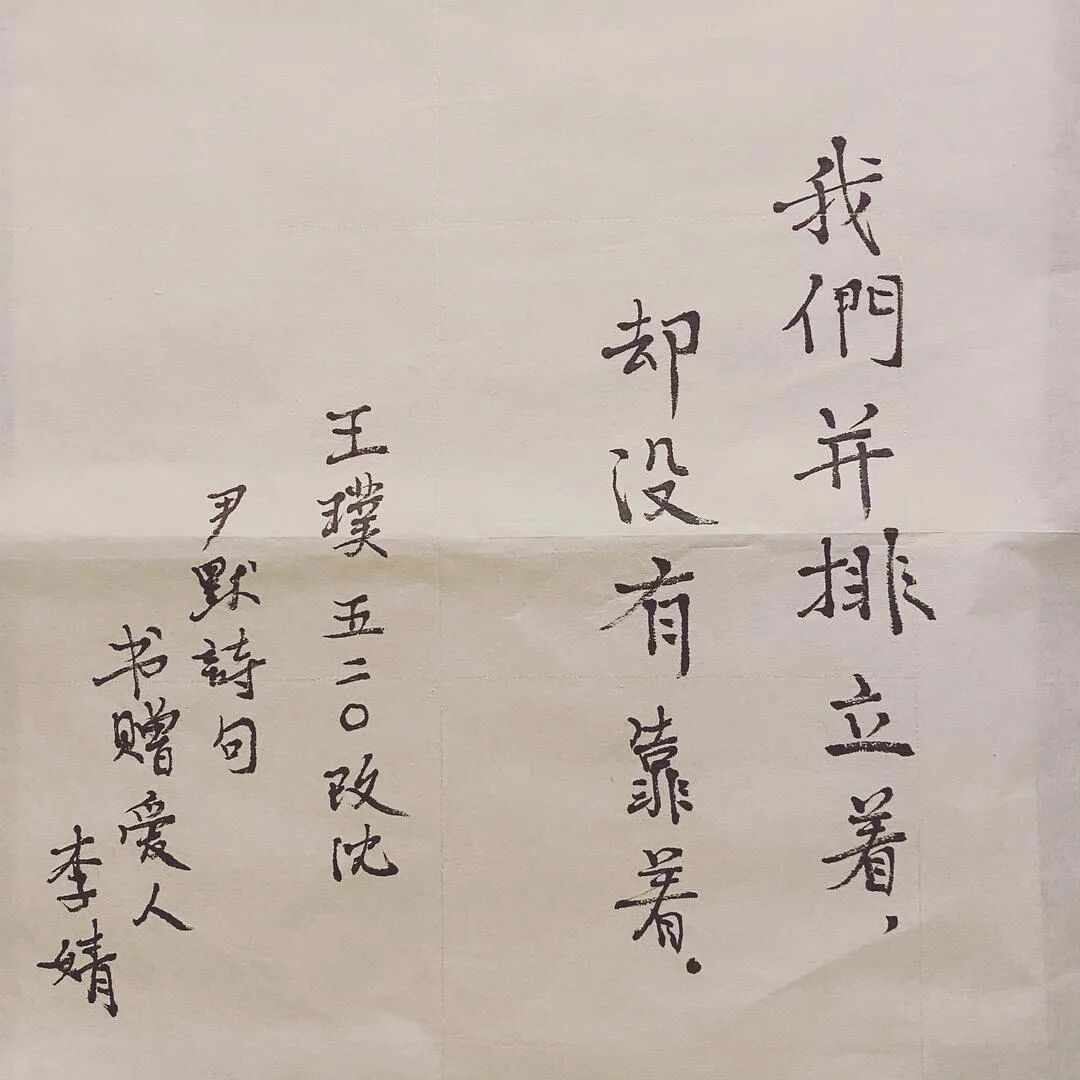 我們并排立着，
却没有靠着．
王璞五二〇改沈
尹默詩句
书赠爱人
李婧